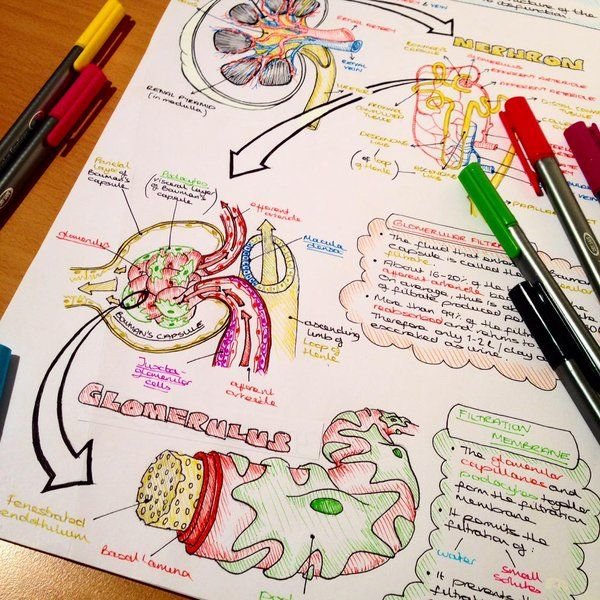 RENAL ARTERY
RENAL
VEIN
URETER
RENAL PYRAMID
(in medulla)
NEPHRON
BOWMAN'S
CAPSULE
GLOMERULUS
EFFERENT ARTERIOLE
AFFERENT ARTERIOLE
DISTAL
TUBULE
PROXIMAL
CONVOLUTED
TUBULE
DESCENDING
LIMB
(of loop
of Henle)
ASCENDING
LIMB
Parietal
layer of
Bowman's
capsule
Podocytes
(visceral layer
of Bowman's
capsule
efferent
arteriole
Glomerulus
Macula
densa
BOWMAN'S CAPSULE
ascending
limb of
Loop of
Henle
Juxta-
glomerular
cells
afferent
arteriole
GLOMERULAR FILTR
The fluid that ente
capsule is called the
filtrate
About 16-20% of the
afferent arteriole be
On average, this is
of filtrate produced pe
More than 99% of the filt
reabsorbed and returns to
Therefore only 1-2 L / day
excreted as urine.
GLOMERULUS
Fenestrated
endothelium
Basal Lamina
FILTRATION
MEMBRANE
The glomerular
capillaries and
podocytes together
form the filtration
membrane
It permits the
filtration of:
water small
solutes
It prevents
filtration